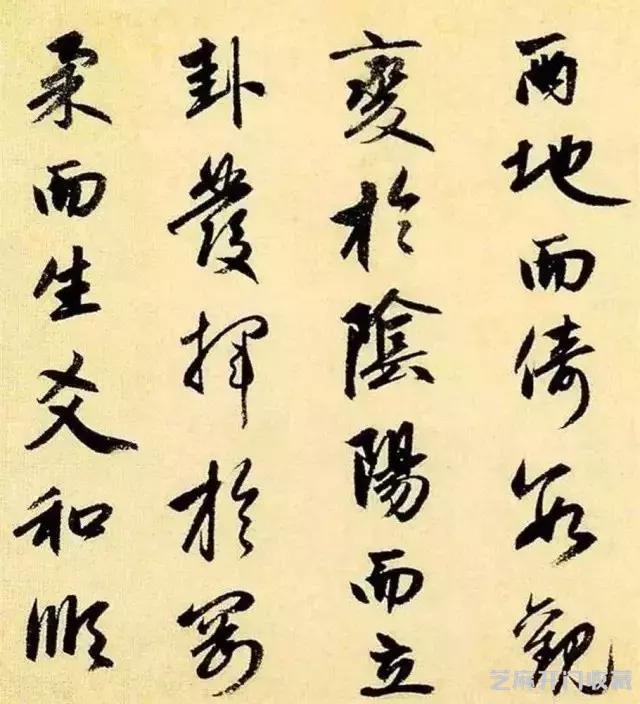 兩地而倚數觀
變於陰陽而立
卦發揮於剛
柔而生爻和順
芝麻开门收藏